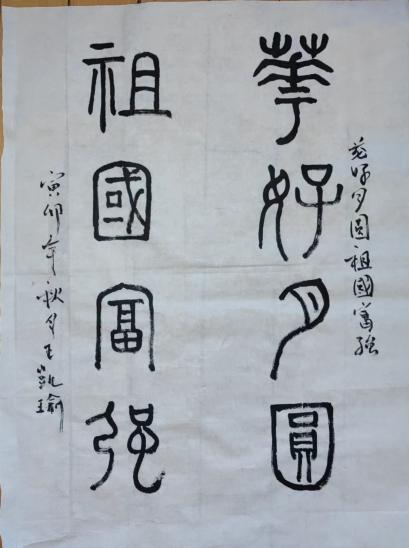 花好月圓祖國富強
華好月圓
祖國富强
寅卯年秋月王凱瑜